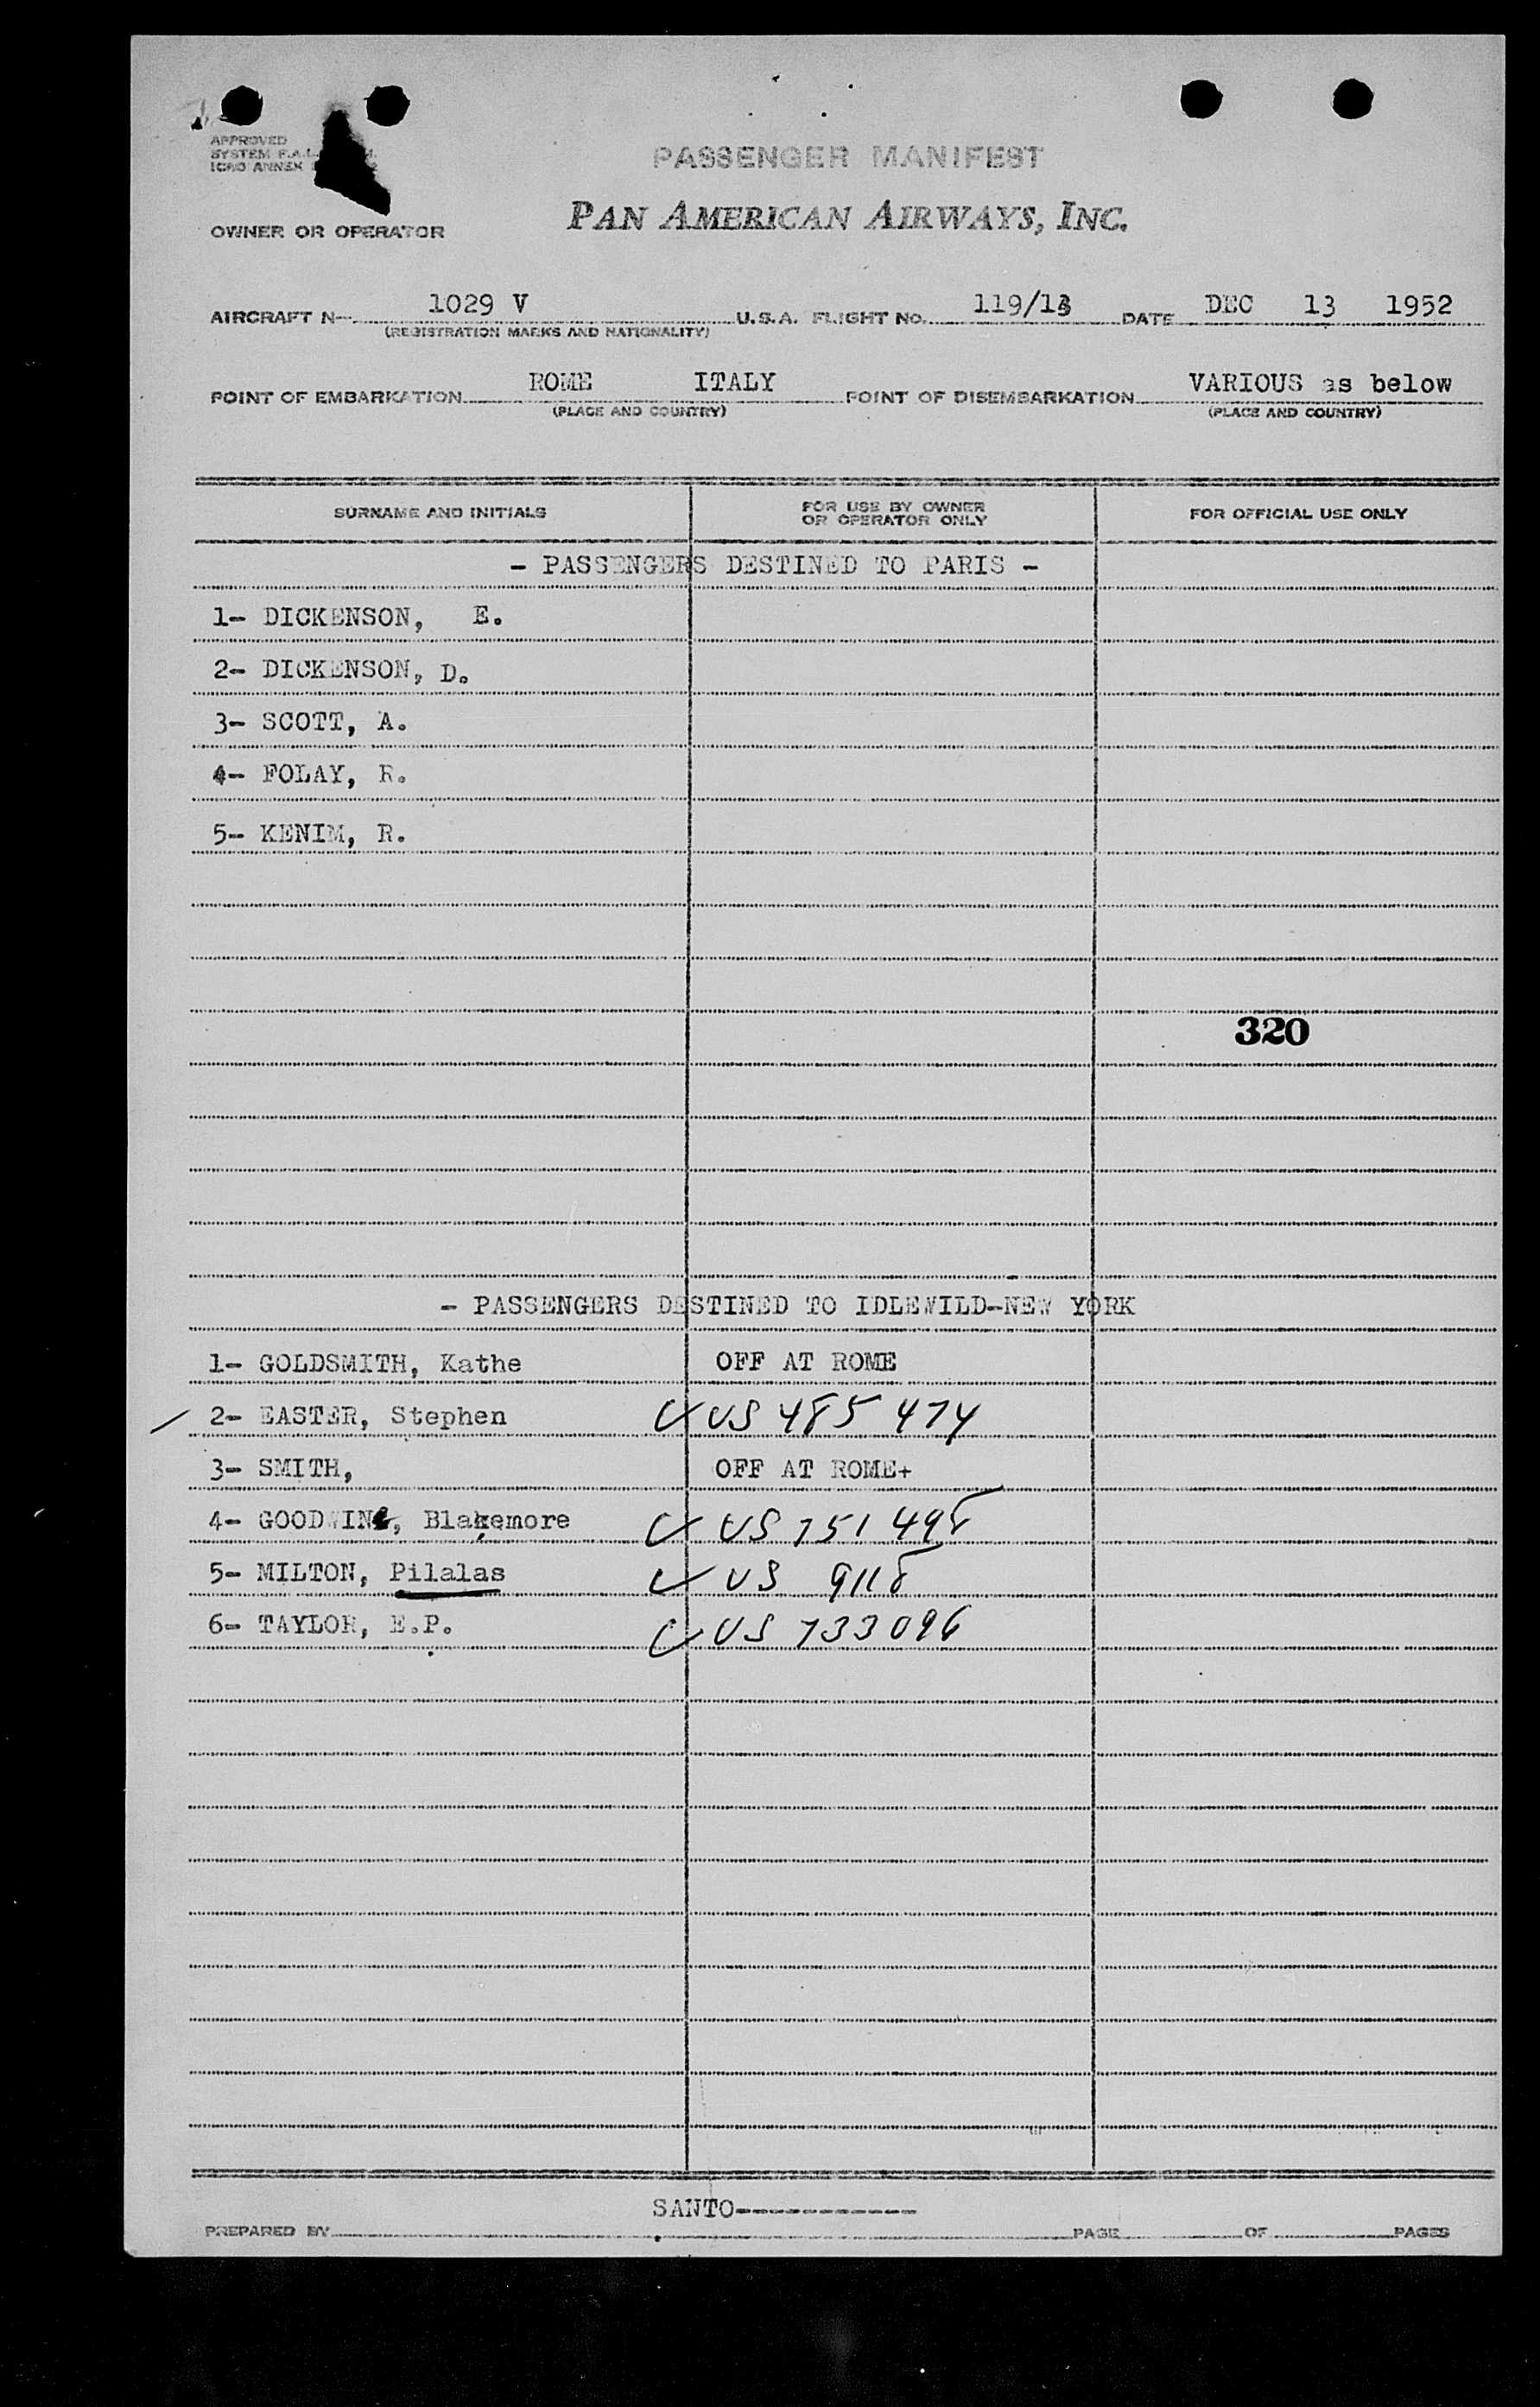 APPROVED
SYSTEM F.A.L.
ICAO ANNEX
PASSENGER MANIFEST
OWNER OR OPERATOR
PAN AMERICAN AIRWAYS, INC.
AIRCRAFT N- 1029 V U.S.A. FLIGHT NO. 119/13 DATE DEC 13 1952
(REGISTRATION MARKS AND NATIONALITY)
POINT OF EMBARKATION ROME ITALY POINT OF DISEMBARKATION VARIOUS as below
(PLACE AND COUNTRY) (PLACE AND COUNTRY)
SURNAME AND INITIALS FOR USE BY OWNER OR OPERATOR ONLY FOR OFFICIAL USE ONLY
- PASSENGERS DESTINED TO PARIS -
1- DICKENSON, E.
2- DICKENSON, D.
3- SCOTT, A.
4- FOLAY, R.
5- KENIM, R.
320
- PASSENGERS DESTINED TO IDLEWILD-NEW YORK
1- GOLDSMITH, Kathe OFF AT ROME
2- EASTER, Stephen US 485 474
3- SMITH, OFF AT ROME+
4- GOODWIN, Blakemore US 751 498
5- MILTON, Pilalas US 9118
6- TAYLOR, E.P. US 733096
SANTO------------
PREPARED BY PAGE OF PAGES